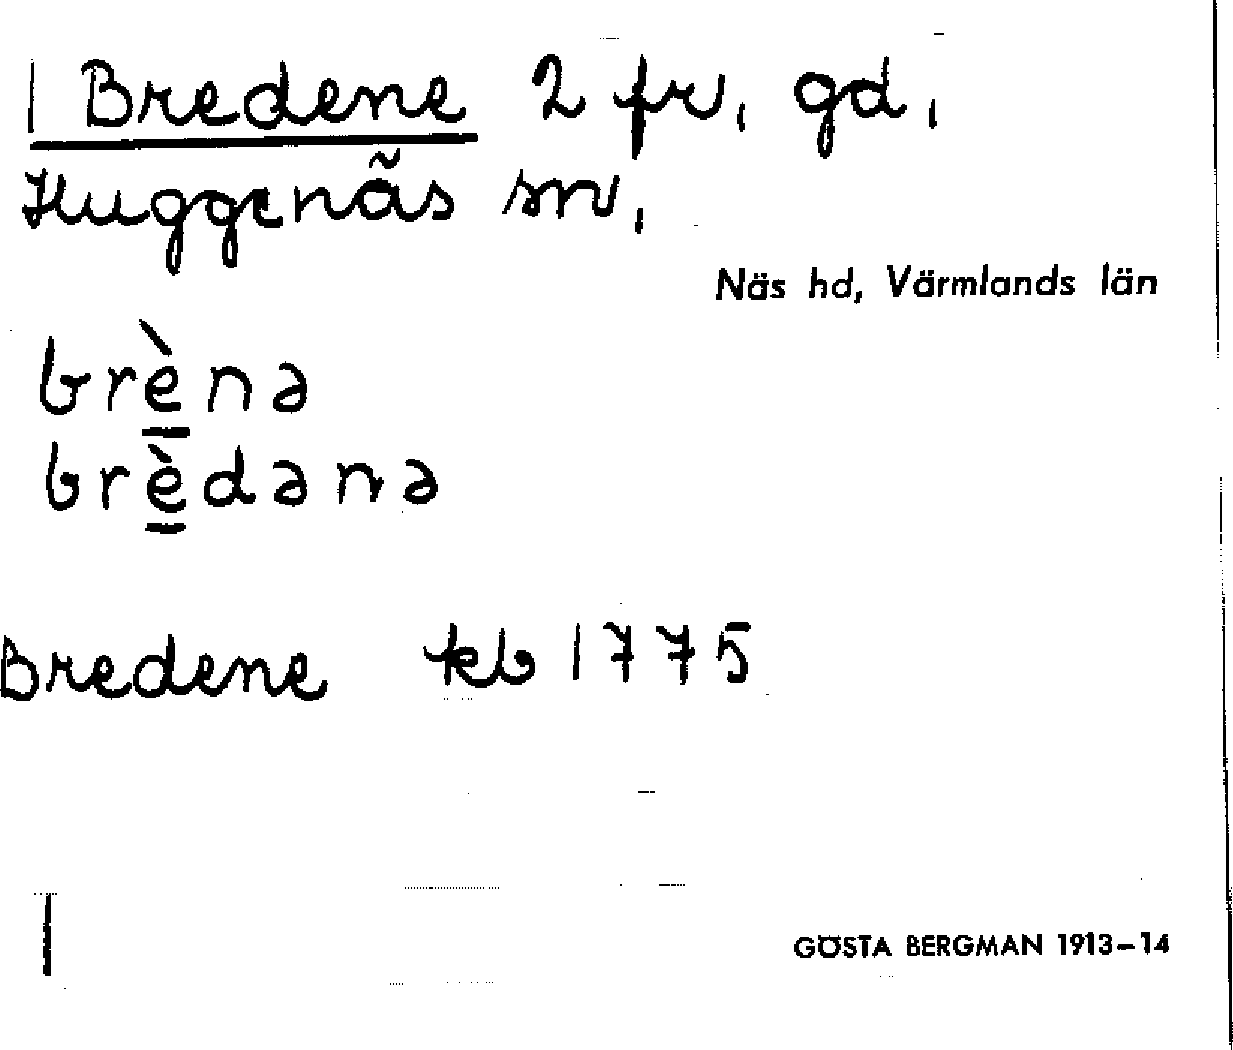 1 Bredene 2 frv, gd,
Huggenäs sn,
Näs hd, Värmlands län
brènə
brèdənə
Bredene kb 1775
GÖSTA BERGMAN 1913–14